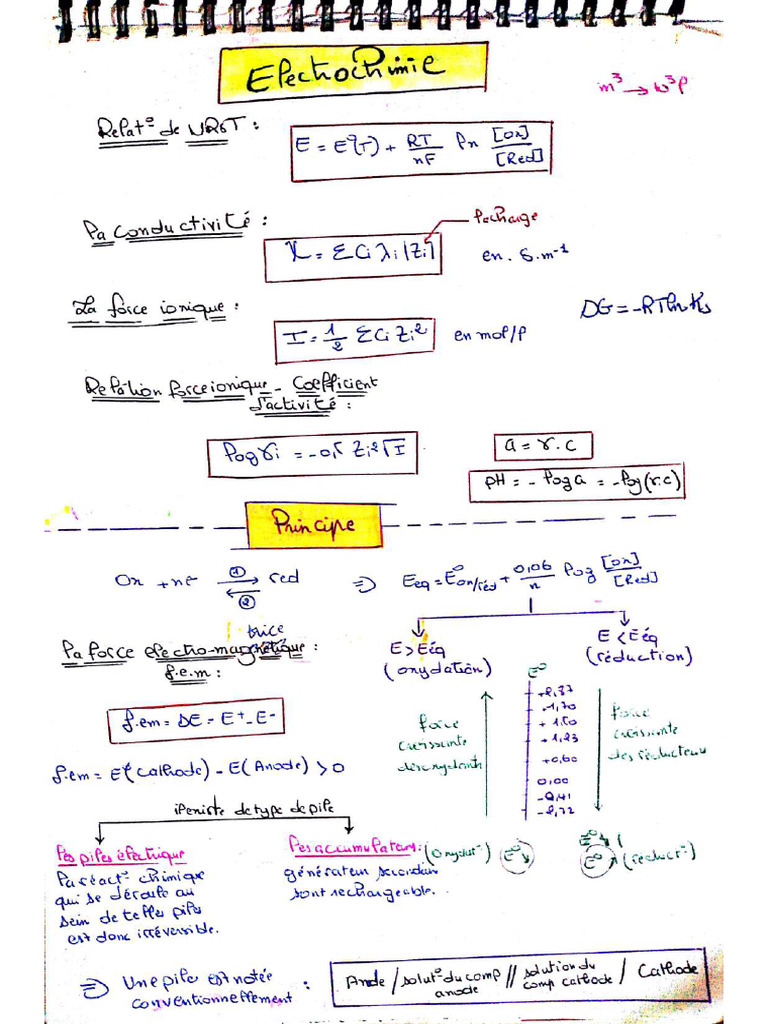 Electrochimie
m³ → 10³ l
Relat° de NRST :
E = E°(T) + RT/nF ln [Ox]/[Red]
la conductivité :
la charge
χ = Σ Ci λi |Zi|
en. S.m⁻¹
La force ionique :
I = 1/2 Σ Ci Zi²
en mol/l
DG = -RT ln Ks
Relation force ionique - Coefficient
d'activité :
log γi = -0,5 Zi² √I
a = γ.c
pH = - log a = - log(γ.c)
Principe
Ox + ne ① ⇄ ② red ⇒ Eeq = E°ox/red + 0,06/n log [ox]/[Red]
trice
la force electro-magnétique :
f.e.m :
E > Eéq
(oxydation)
E < Eéq
(réduction)
f.em = ΔE = E⁺ - E⁻
f.em = E(Cathode) - E(Anode) > 0
force
croissante
des oxydants
E°
+2,37
+1,70
+1,50
+1,23
+0,60
0,00
-0,41
-2,72
force
croissante
des réducteurs
il existe de type de pile
les piles électrique
la réact° chimique
qui se déroule au
sein de telles piles
est donc irréversible.
les accumulateurs :
générateur secondair
sont rechargeable.
(oxydat°) E°
E°
E° (réduct°)
⇒ Une pile est notée
conventionnellement :
Anode / solut° du comp anode // solution du comp cathode / Cathode